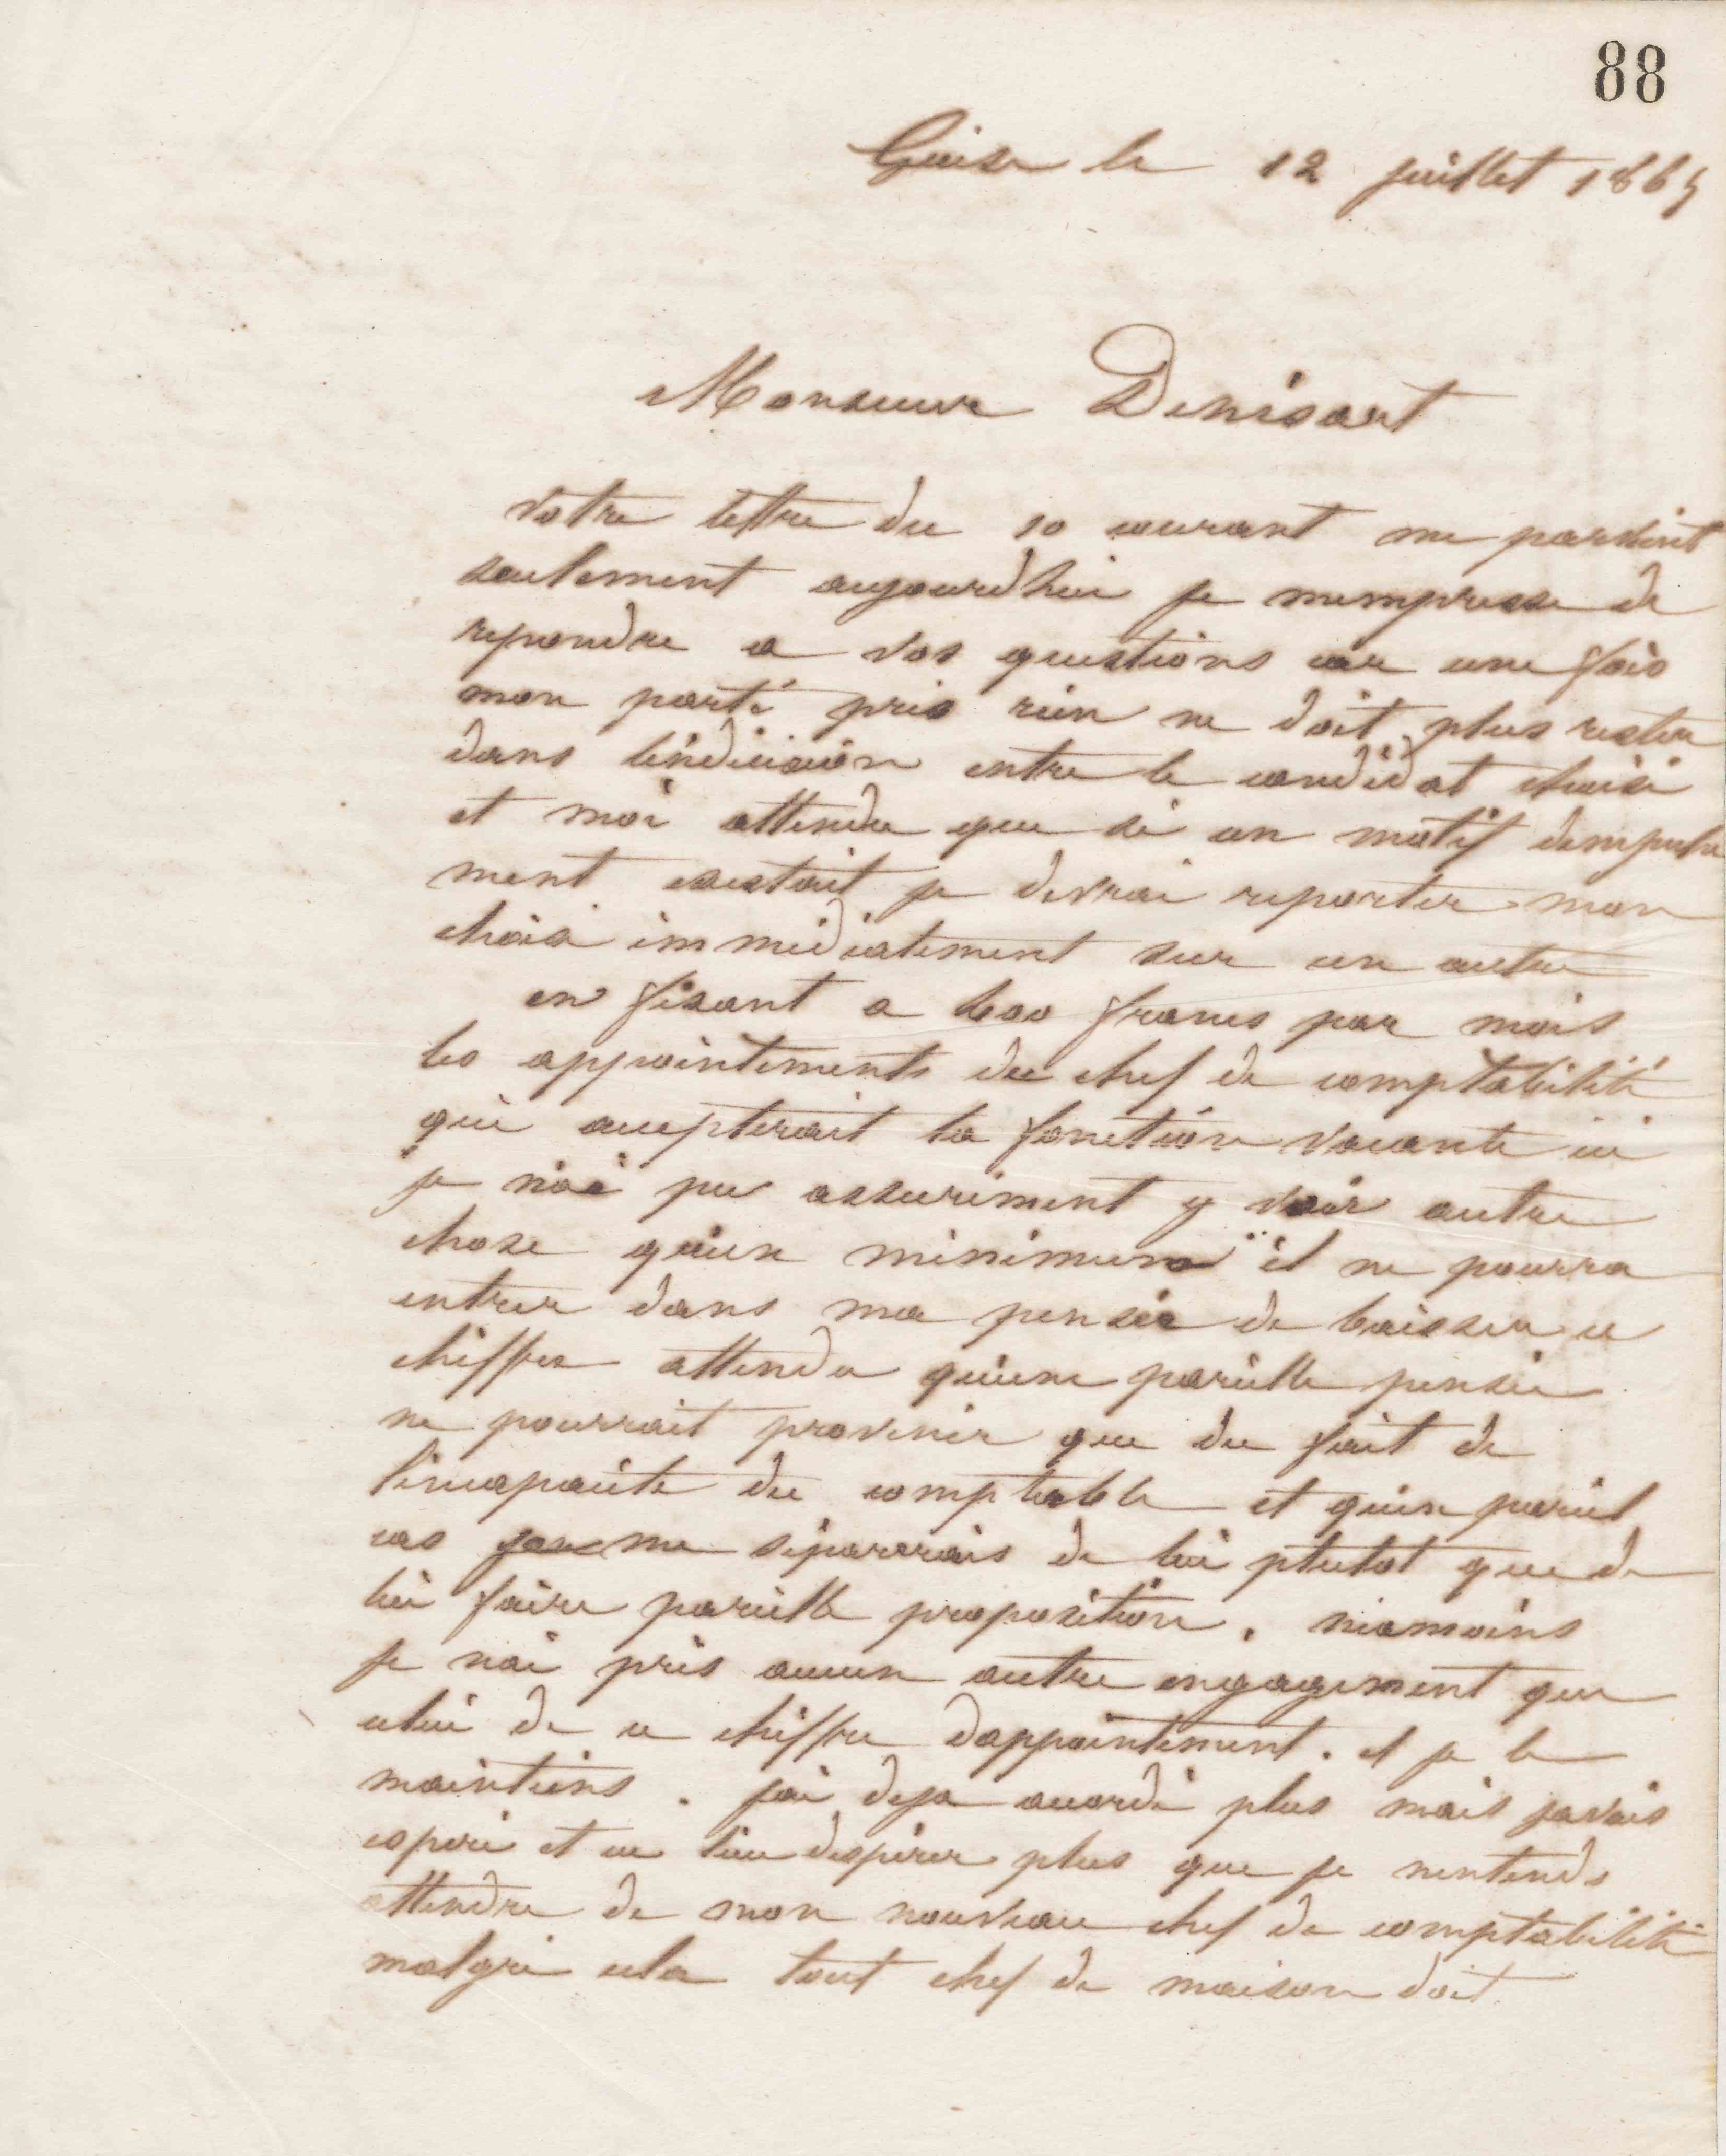 88
Guise le 12 juillet 1865
Monsieur Denisart
votre lettre du 10 courant me parvient
seulement aujourdhui je mempresse de
repondre a vos questions car une fois
mon parti pris rien ne doit plus rester
dans lindecision entre le candidat choisi
et moi attendu que si un motif dempeche
ment existait je devrai reporter mon
choix immediatement sur un autre
en fixant a 600 francs par mois
les appointements du chef de comptabilité
qui accepterait la fonction vacante ici
je nai pu assurement y voir autre
chose quun minimum il ne pourra
entrer dans ma pensée de baisser ce
chiffre attendu quune pareille pensée
ne pourrait provenir que du fait de
lincapacite du comptable et quen pareil
cas je me separerais de lui plutot que de
lui faire pareille proposition. néamoins
je nai pris aucun autre engagement que
celui de ce chiffre dappointement. et je le
maintiens. jai deja accordé plus mais javais
esperé et eu lieu desperer plus que je nentends
attendre de mon nouveau chef de comptabilité
malgré cela tout chef de maison doit